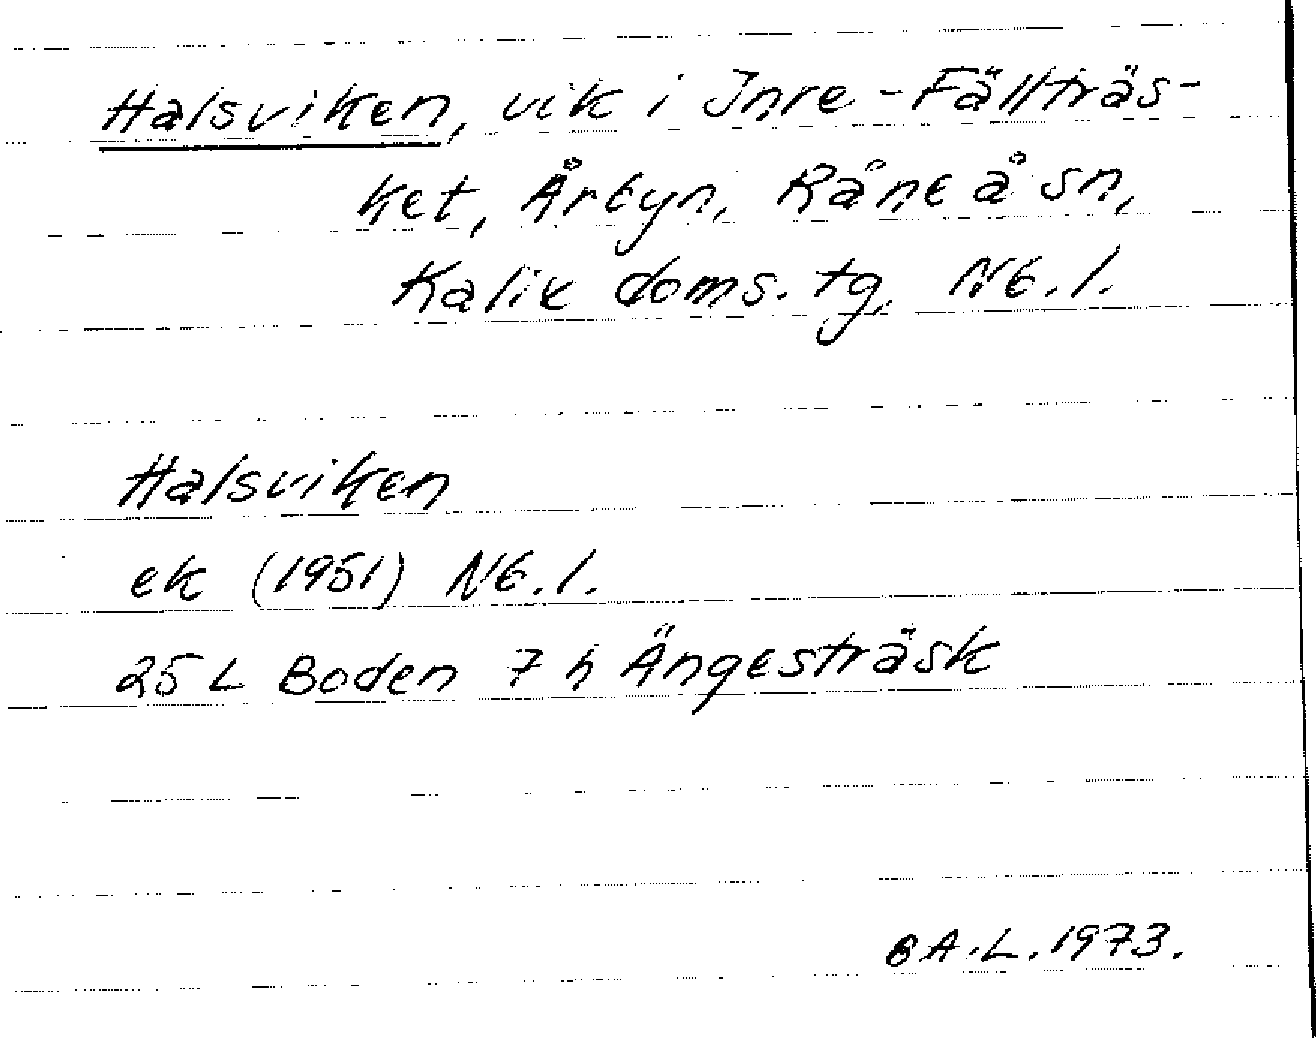 Halsviken, vik i Inre-Fällträs-
ket, Årbyn, Råneå sn,
Kalix doms. tg, Nb. l.
Halsviken
ek (1951) Nb. l.
25 L Boden 7 h Ängesträsk
BA.L. 1973.